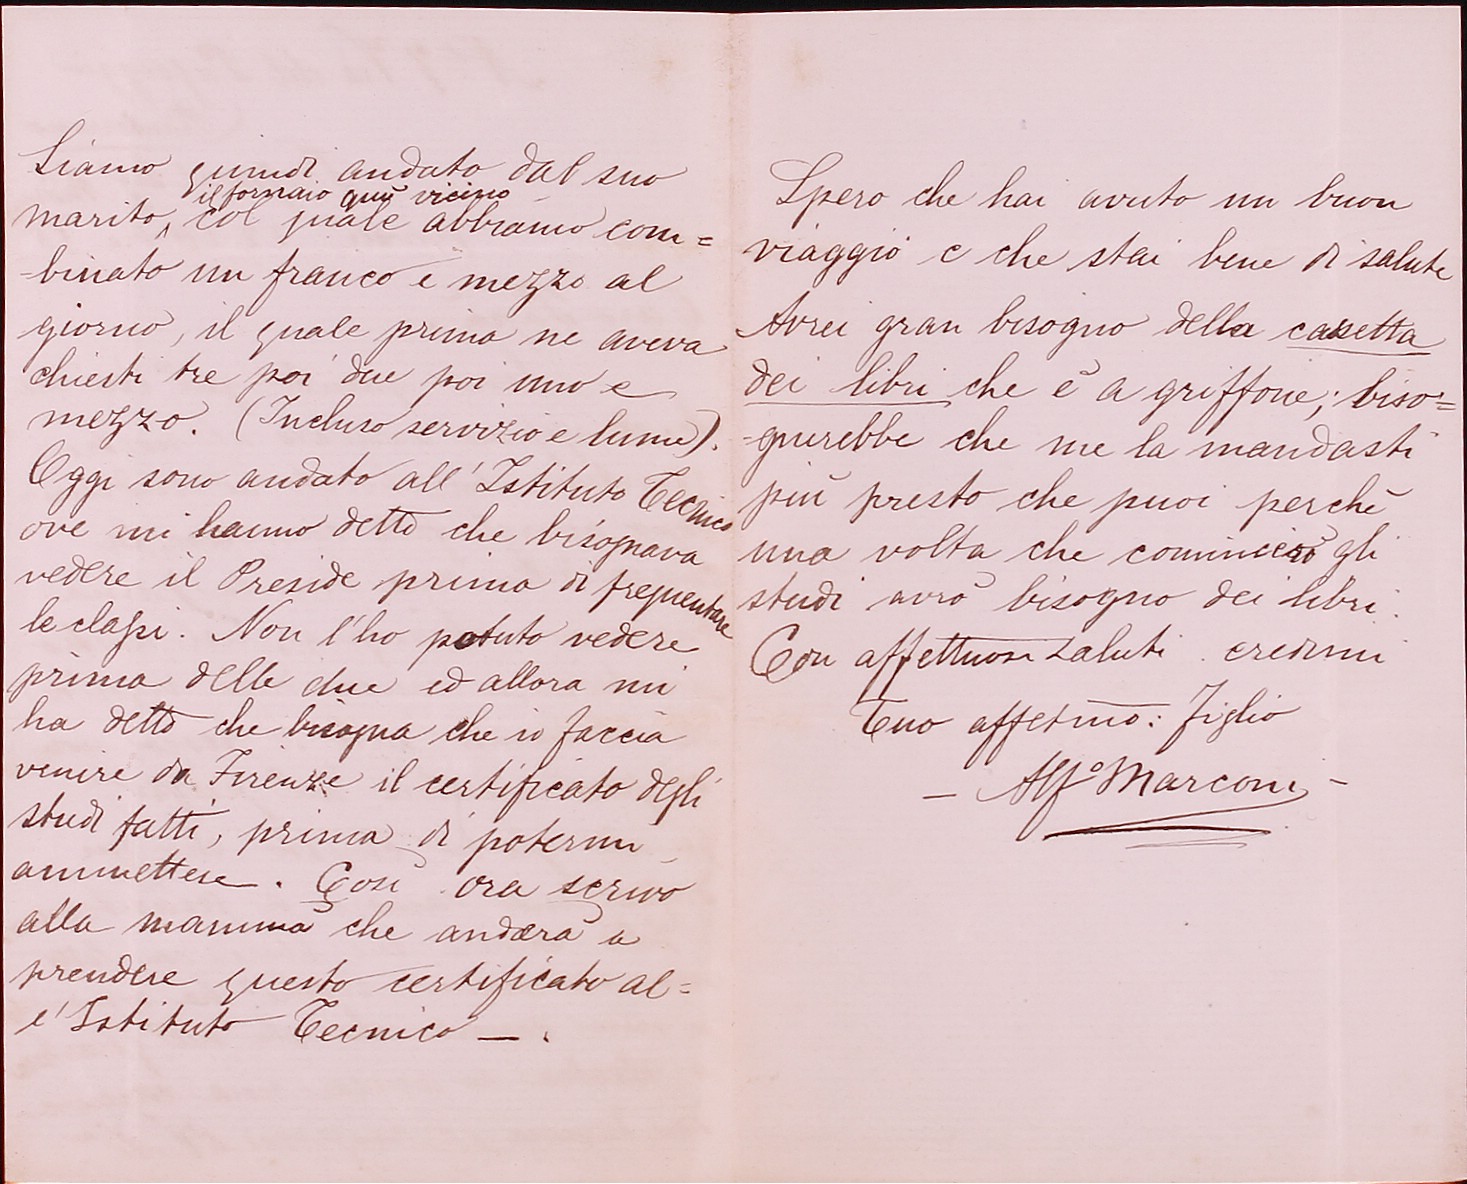 Siamo quindi andato dal suo
il fornaio quì vicino
marito, col quale abbiamo com=
binato un franco e mezzo al
giorno, il quale prima ne aveva
chiesti tre poi due poi uno e
mezzo. (Incluso servizio e lume).
Oggi sono andato all'Istituto Tecnico
ove mi hanno detto che bisognava
vedere il Preside prima di frequentare
le classi. Non l'ho potuto vedere
prima delle due ed allora mi
ha detto che bisogna che io faccia
venire da Firenze il certificato degli
studi fatti, prima di potermi
ammettere. Così ora scrivo
alla mamma che anderà a
prendere questo certificato al=
l'Istituto Tecnico — .
Spero che hai avuto un buon
viaggio e che stai bene di salute
Avrei gran bisogno della casetta
dei libri che è a griffone; biso=
gnerebbe che me la mandasti
più presto che puoi perchè
una volta che comincierò gli
studi avrò bisogno dei libri.
Con affettuosi saluti credimi
Tuo affezmo: figlio
— Alfo Marconi —